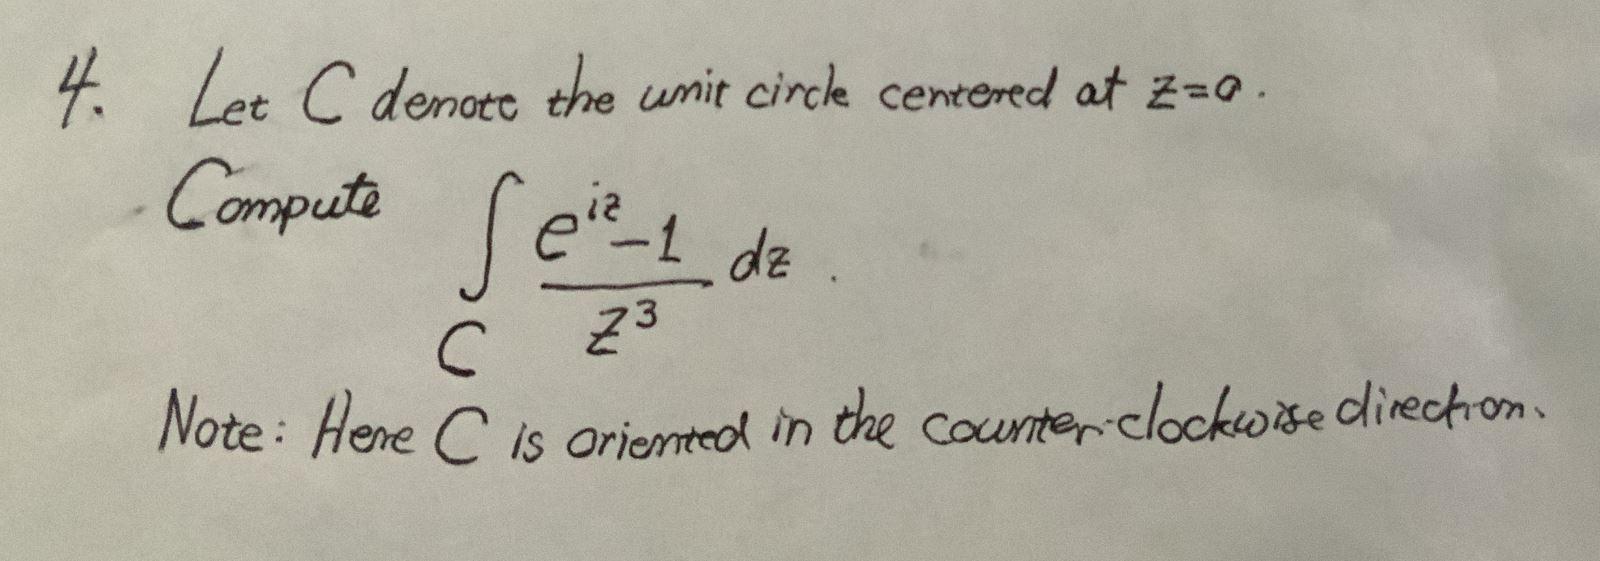 4. Let C denote the unit circle centered at z=0.
Compute ∫_C (e^{iz}-1)/z^3 dz.
Note: Here C is oriented in the counter-clockwise direction.